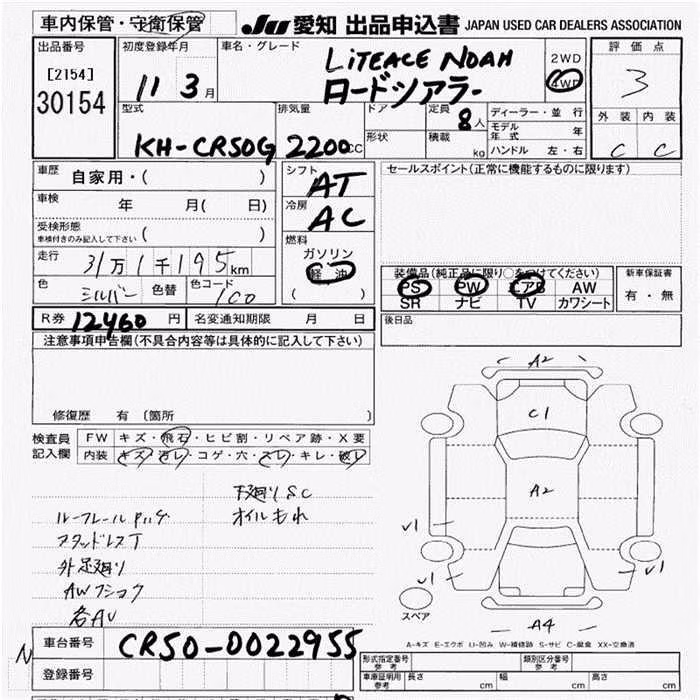 車内保管・守衛保管
JU 愛知 出品申込書 JAPAN USED CAR DEALERS ASSOCIATION
出品番号
[2154]
30154
初度登録年月
11 3 月
車名・グレード
LiTEACE NOAH
ロードツアラー
2WD
4WD
評価点
3
外装 内装
C C
型式
KH-CR50G
排気量
2200 cc
ドア
形状
定員
8人
積載
kg
ディーラー・並行
モデル年式 年
ハンドル 左・右
車歴
自家用・( )
車検
年 月( 日)
受検形態
車検付きのみ記入して下さい ( )
走行
31万1千195km
色
シルバー
色替
色コード
1C0
シフト
AT
冷房
AC
燃料
ガソリン
軽油
( )
セールスポイント(正常に機能するものに限ります)
装備品(純正品に限り○をつけてください)
PS PW エアB AW
SR ナビ TV カワシート
新車保証書
有・無
R券 12460 円 名変通知期限 月 日
後日品
注意事項申告欄(不具合内容等は具体的に記入して下さい)
修復歴 有 〔箇所
検査員
記入欄
FW キズ・飛石・ヒビ割・リペア跡・X要
内装 キズ・汚レ・コゲ・穴・スレ・キレ・破レ
下廻りSC
オイルもれ
ルーフレール
スタッドレスT
外足廻り
AW
各AU
A2
C1
A2
√1
√1
√1
A4
スペア
A-キズ E-エクボ U-凹み W-補修跡 S-サビ C-腐食 XX-交換済
N
車台番号 CR50-0022955
登録番号
形式指定番号
参考
類別区分番号
参考
車庫証明用
参考
長さ cm 幅 cm 高さ cm